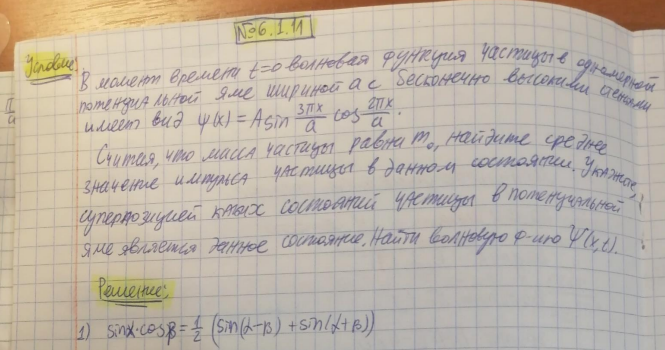 №6.1.11
Условие:
В момент времени t=0 волновая функция частицы в одномерной
потенциальной яме шириной a с бесконечно высокими стенками
имеет вид ψ(x) = A sin 3πx/a cos 2πx/a.
Считая, что масса частицы равна m₀, найдите среднее
значение импульса частицы в данном состоянии. Укажите,
суперпозицией каких состояний частицы в потенциальной
яме является данное состояние. Найти волновую ф-ию Ψ(x,t).
Решение:
1) sinα·cosβ = 1/2 (sin(α-β) + sin(α+β))